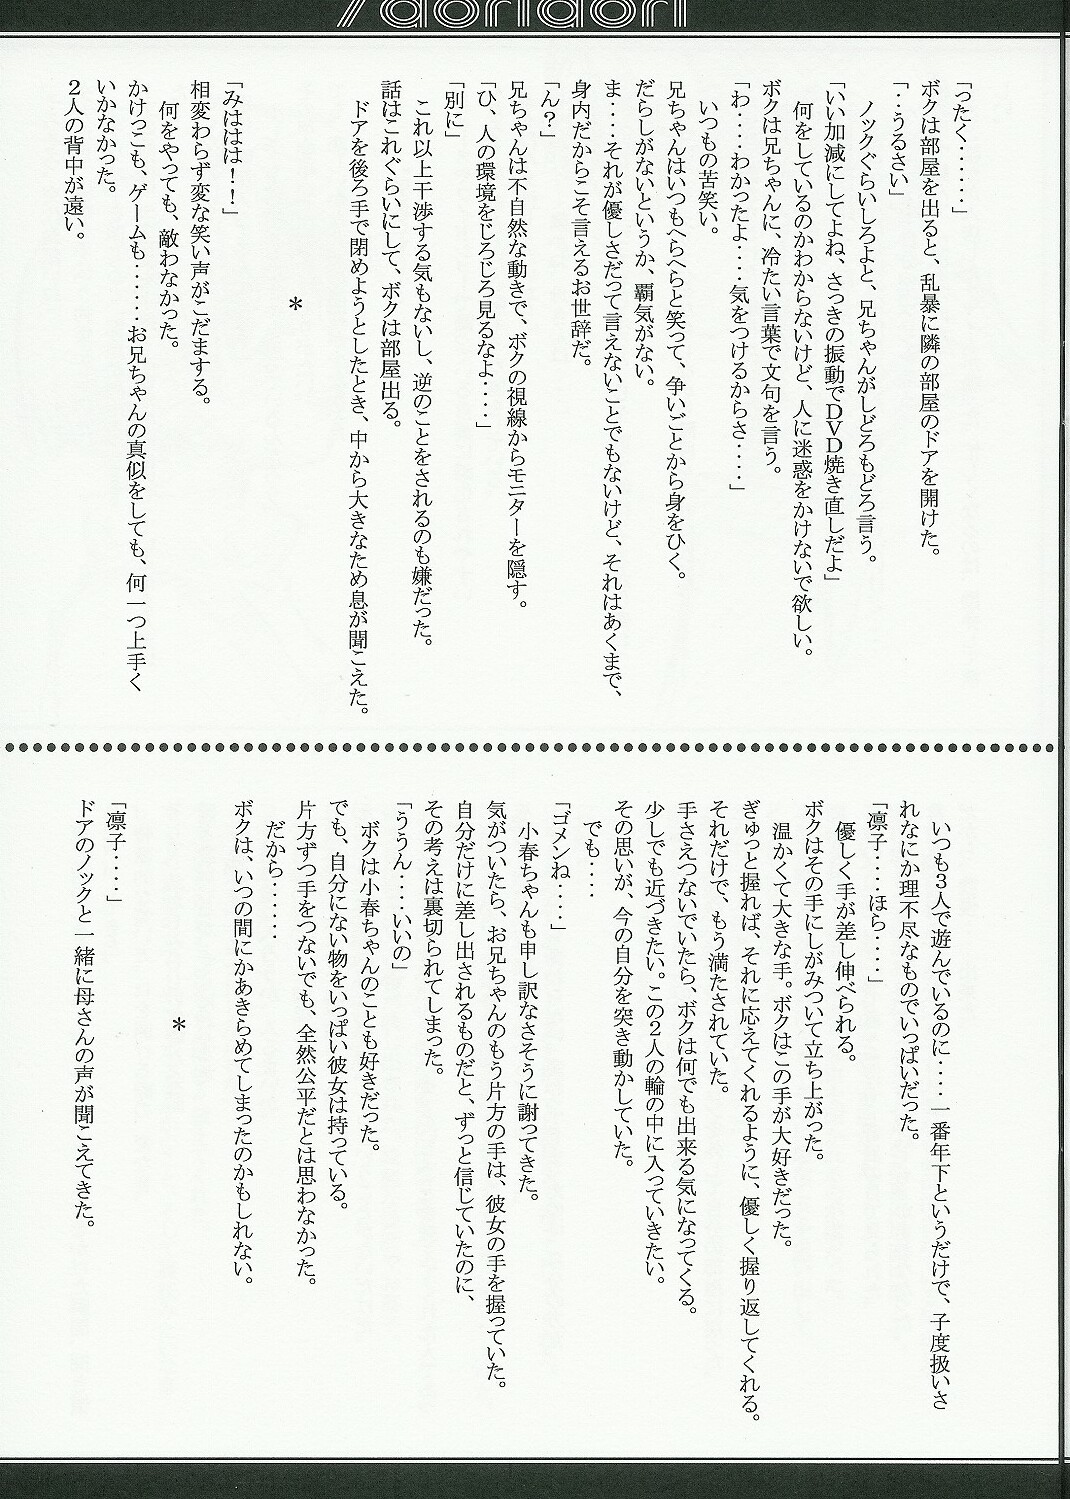 「ったく・・・・・・」
ボクは部屋を出ると、乱暴に隣の部屋のドアを開けた。
「・・うるさい」
ノックぐらいしろよと、兄ちゃんがしどろもどろ言う。
「いい加減にしてよね、さっきの振動でＤＶＤ焼き直しだよ」
何をしているのかわからないけど、人に迷惑をかけないで欲しい。
ボクは兄ちゃんに、冷たい言葉で文句を言う。
「わ・・・・わかったよ・・・・気をつけるからさ・・・・」
いつもの苦笑い。
兄ちゃんはいつもへらへらと笑って、争いごとから身をひく。
だらしがないというか、覇気がない。
ま・・・・それが優しさだって言えないことでもないけど、それはあくまで、
身内だからこそ言えるお世辞だ。
「ん？」
兄ちゃんは不自然な動きで、ボクの視線からモニターを隠す。
「ひ、人の環境をじろじろ見るなよ・・・・」
「別に」
これ以上干渉する気もないし、逆のことをされるのも嫌だった。
話はこれぐらいにして、ボクは部屋出る。
ドアを後ろ手で閉めようとしたとき、中から大きなため息が聞こえた。
＊
「みははは！・！」
相変わらず変な笑い声がこだまする。
何をやっても、敵わなかった。
かけっこも、ゲームも・・・・・お兄ちゃんの真似をしても、何一つ上手く
いかなかった。
２人の背中が遠い。
いつも３人で遊んでいるのに・・・・一番年下というだけで、子度扱いさ
れなにか理不尽なものでいっぱいだった。
「凛子・・・・ほら・・・・」
優しく手が差し伸べられる。
ボクはその手にしがみついて立ち上がった。
温かくて大きな手。ボクはこの手が大好きだった。
ぎゅっと握れば、それに応えてくれるように、優しく握り返してくれる。
それだけで、もう満たされていた。
手さえつないでいたら、ボクは何でも出来る気になってくる。
少しでも近づきたい。この２人の輪の中に入っていきたい。
その思いが、今の自分を突き動かしていた。
でも・・・・
「ゴメンね・・・・」
小春ちゃんも申し訳なさそうに謝ってきた。
気がついたら、お兄ちゃんのもう片方の手は、彼女の手を握っていた。
自分だけに差し出されるものだと、ずっと信じていたのに、
その考えは裏切られてしまった。
「ううん・・・・いいの」
ボクは小春ちゃんのことも好きだった。
でも、自分にない物をいっぱい彼女は持っている。
片方ずつ手をつないでも、全然公平だとは思わなかった。
だから・・・・・
ボクは、いつの間にかあきらめてしまったのかもしれない。
＊
「凛子・・・・」
ドアのノックと一緒に母さんの声が聞こえてきた。